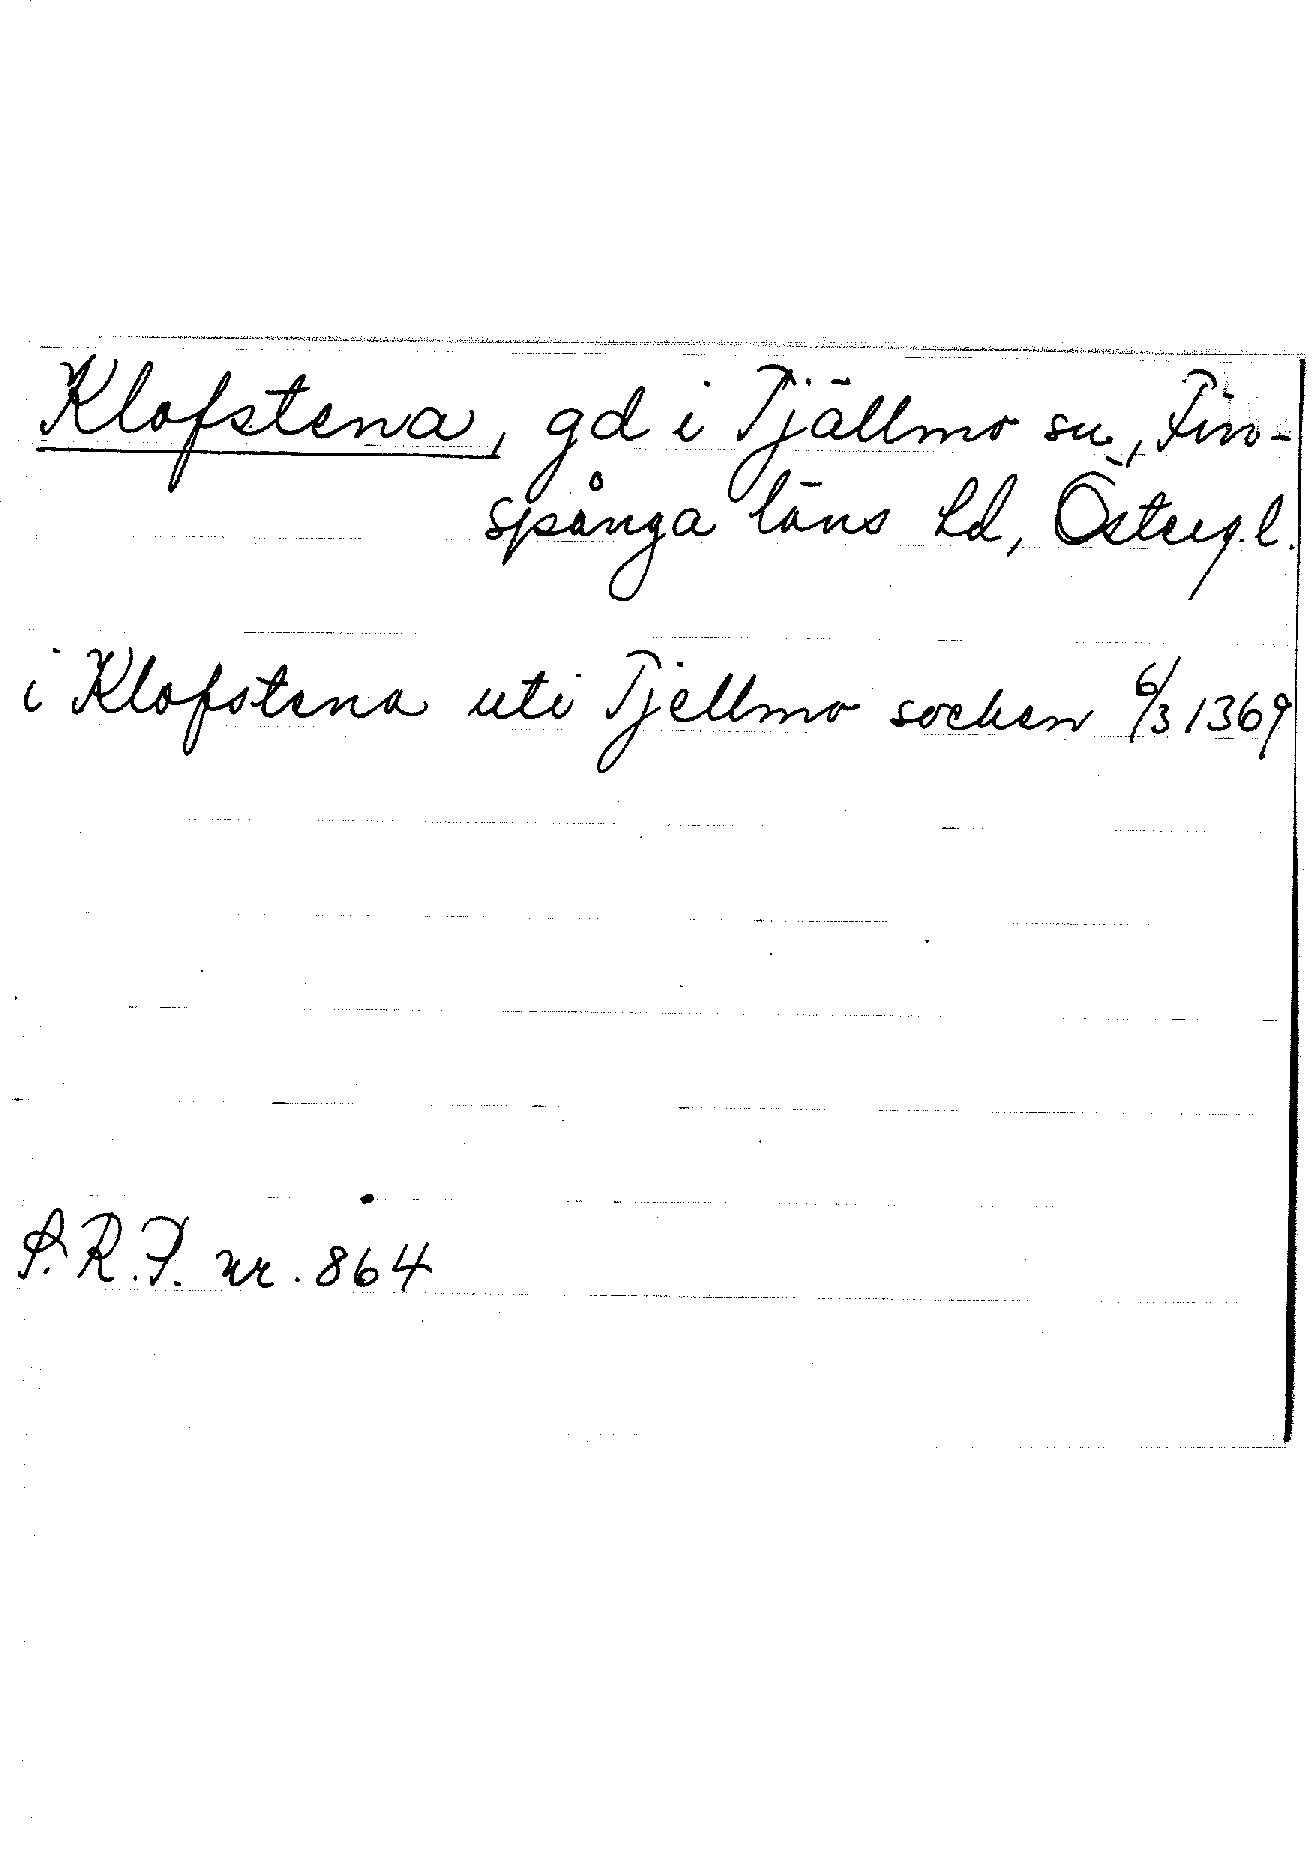 Klofstena, gd i Tjällmo sn, Fin-
spånga läns hd, Östergl.
i Klofstena uti Tjellmo socken 6/3 1369
S.R.P. nr. 864